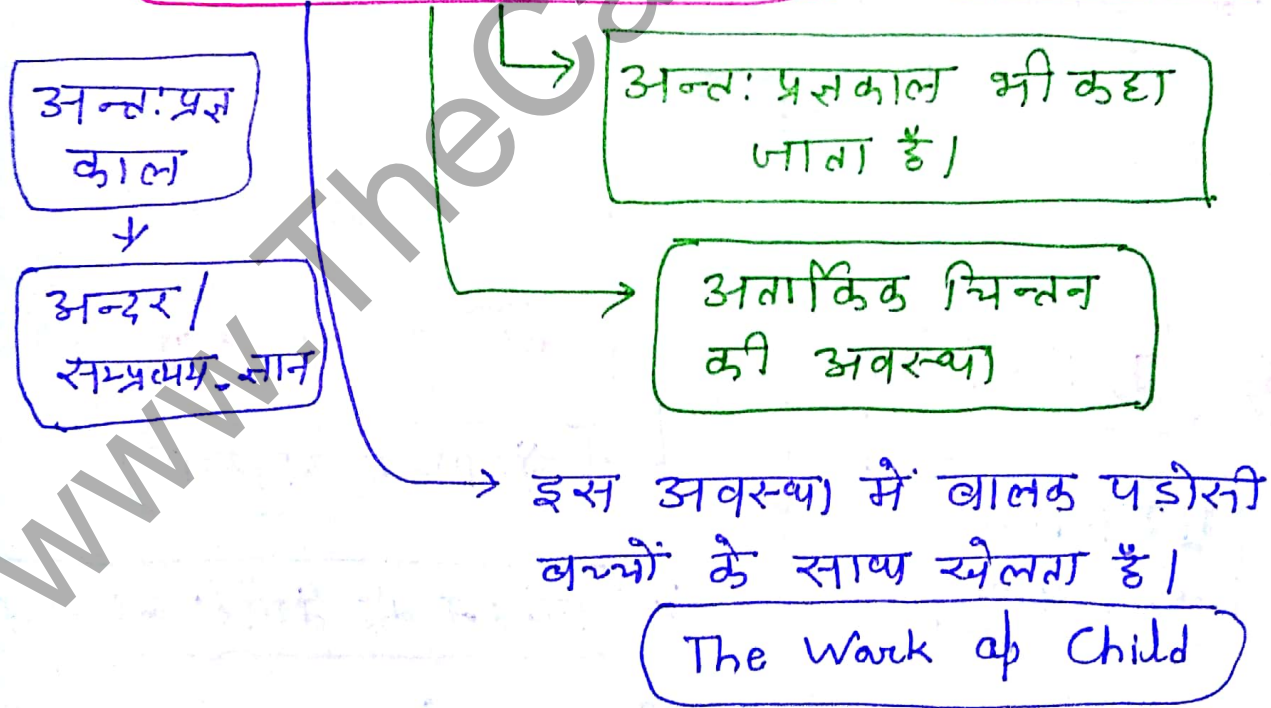 अन्तः प्रज्ञ
काल
अन्दर /
सम्प्रत्यय - ज्ञान
अन्तः प्रज्ञकाल भी कहा
जाता है।
अतार्किक चिन्तन
की अवस्था
इस अवस्था में बालक पड़ोसी
बच्चों के साथ खेलता है।
The Work of Child
www.TheCa